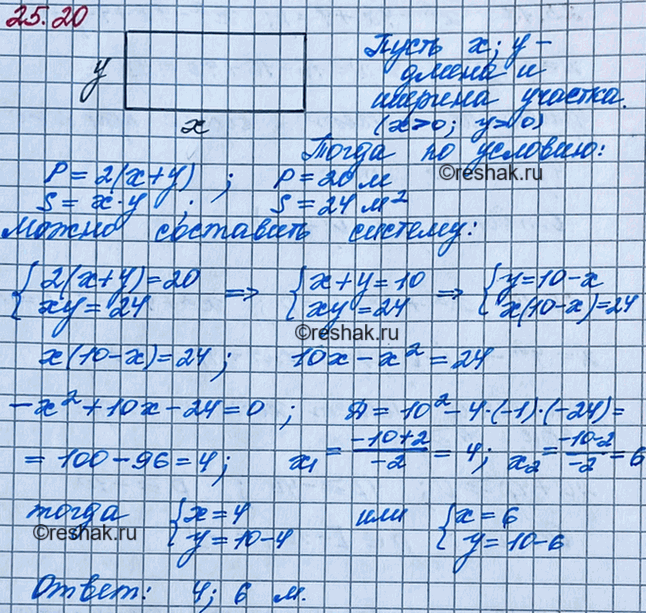 25.20
Пусть x; y –
y
длина и
ширина участка.
x
(x>0; y>0)
Тогда по условию:
P = 2(x+y) ; P = 20 м
©reshak.ru
S = x·y ; S = 24 м²
Можно составить систему:
{2(x+y)=20 => {x+y=10 => {y=10-x
xy=24 xy=24 x(10-x)=24
©reshak.ru
x(10-x)=24; 10x-x²=24
-x²+10x-24=0 ; Д=10²-4·(-1)·(-24)=
=100-96=4; x₁=(-10+2)/-2=4; x₂=(-10-2)/-2=6
тогда {x=4 или {x=6
y=10-4 y=10-6
©reshak.ru
Ответ: 4; 6 м.